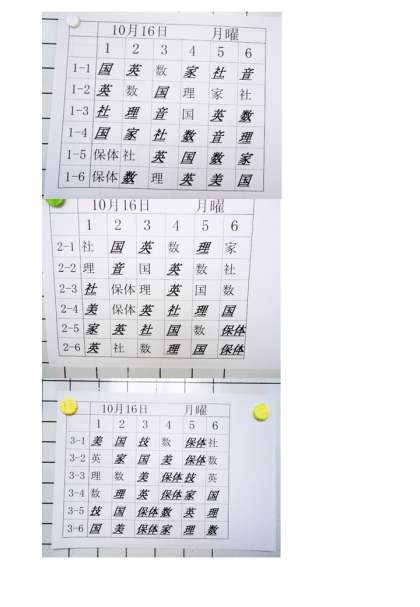 10月16日 月曜
1 2 3 4 5 6
1-1 国 英 数 家 社 音
1-2 英 数 国 理 家 社
1-3 社 理 音 国 英 数
1-4 国 家 社 数 音 理
1-5 保体 社 英 国 数 家
1-6 保体 数 理 英 美 国
10月16日 月曜
1 2 3 4 5 6
2-1 社 国 英 数 理 家
2-2 理 音 国 英 数 社
2-3 社 保体 理 英 国 数
2-4 美 保体 英 社 理 国
2-5 家 英 社 国 数 保体
2-6 英 社 数 理 国 保体
10月16日 月曜
1 2 3 4 5 6
3-1 美 国 技 数 保体 社
3-2 英 家 国 美 保体 数
3-3 理 数 美 保体 技 英
3-4 数 理 英 保体 家 国
3-5 技 国 保体 数 英 理
3-6 国 美 保体 家 理 数